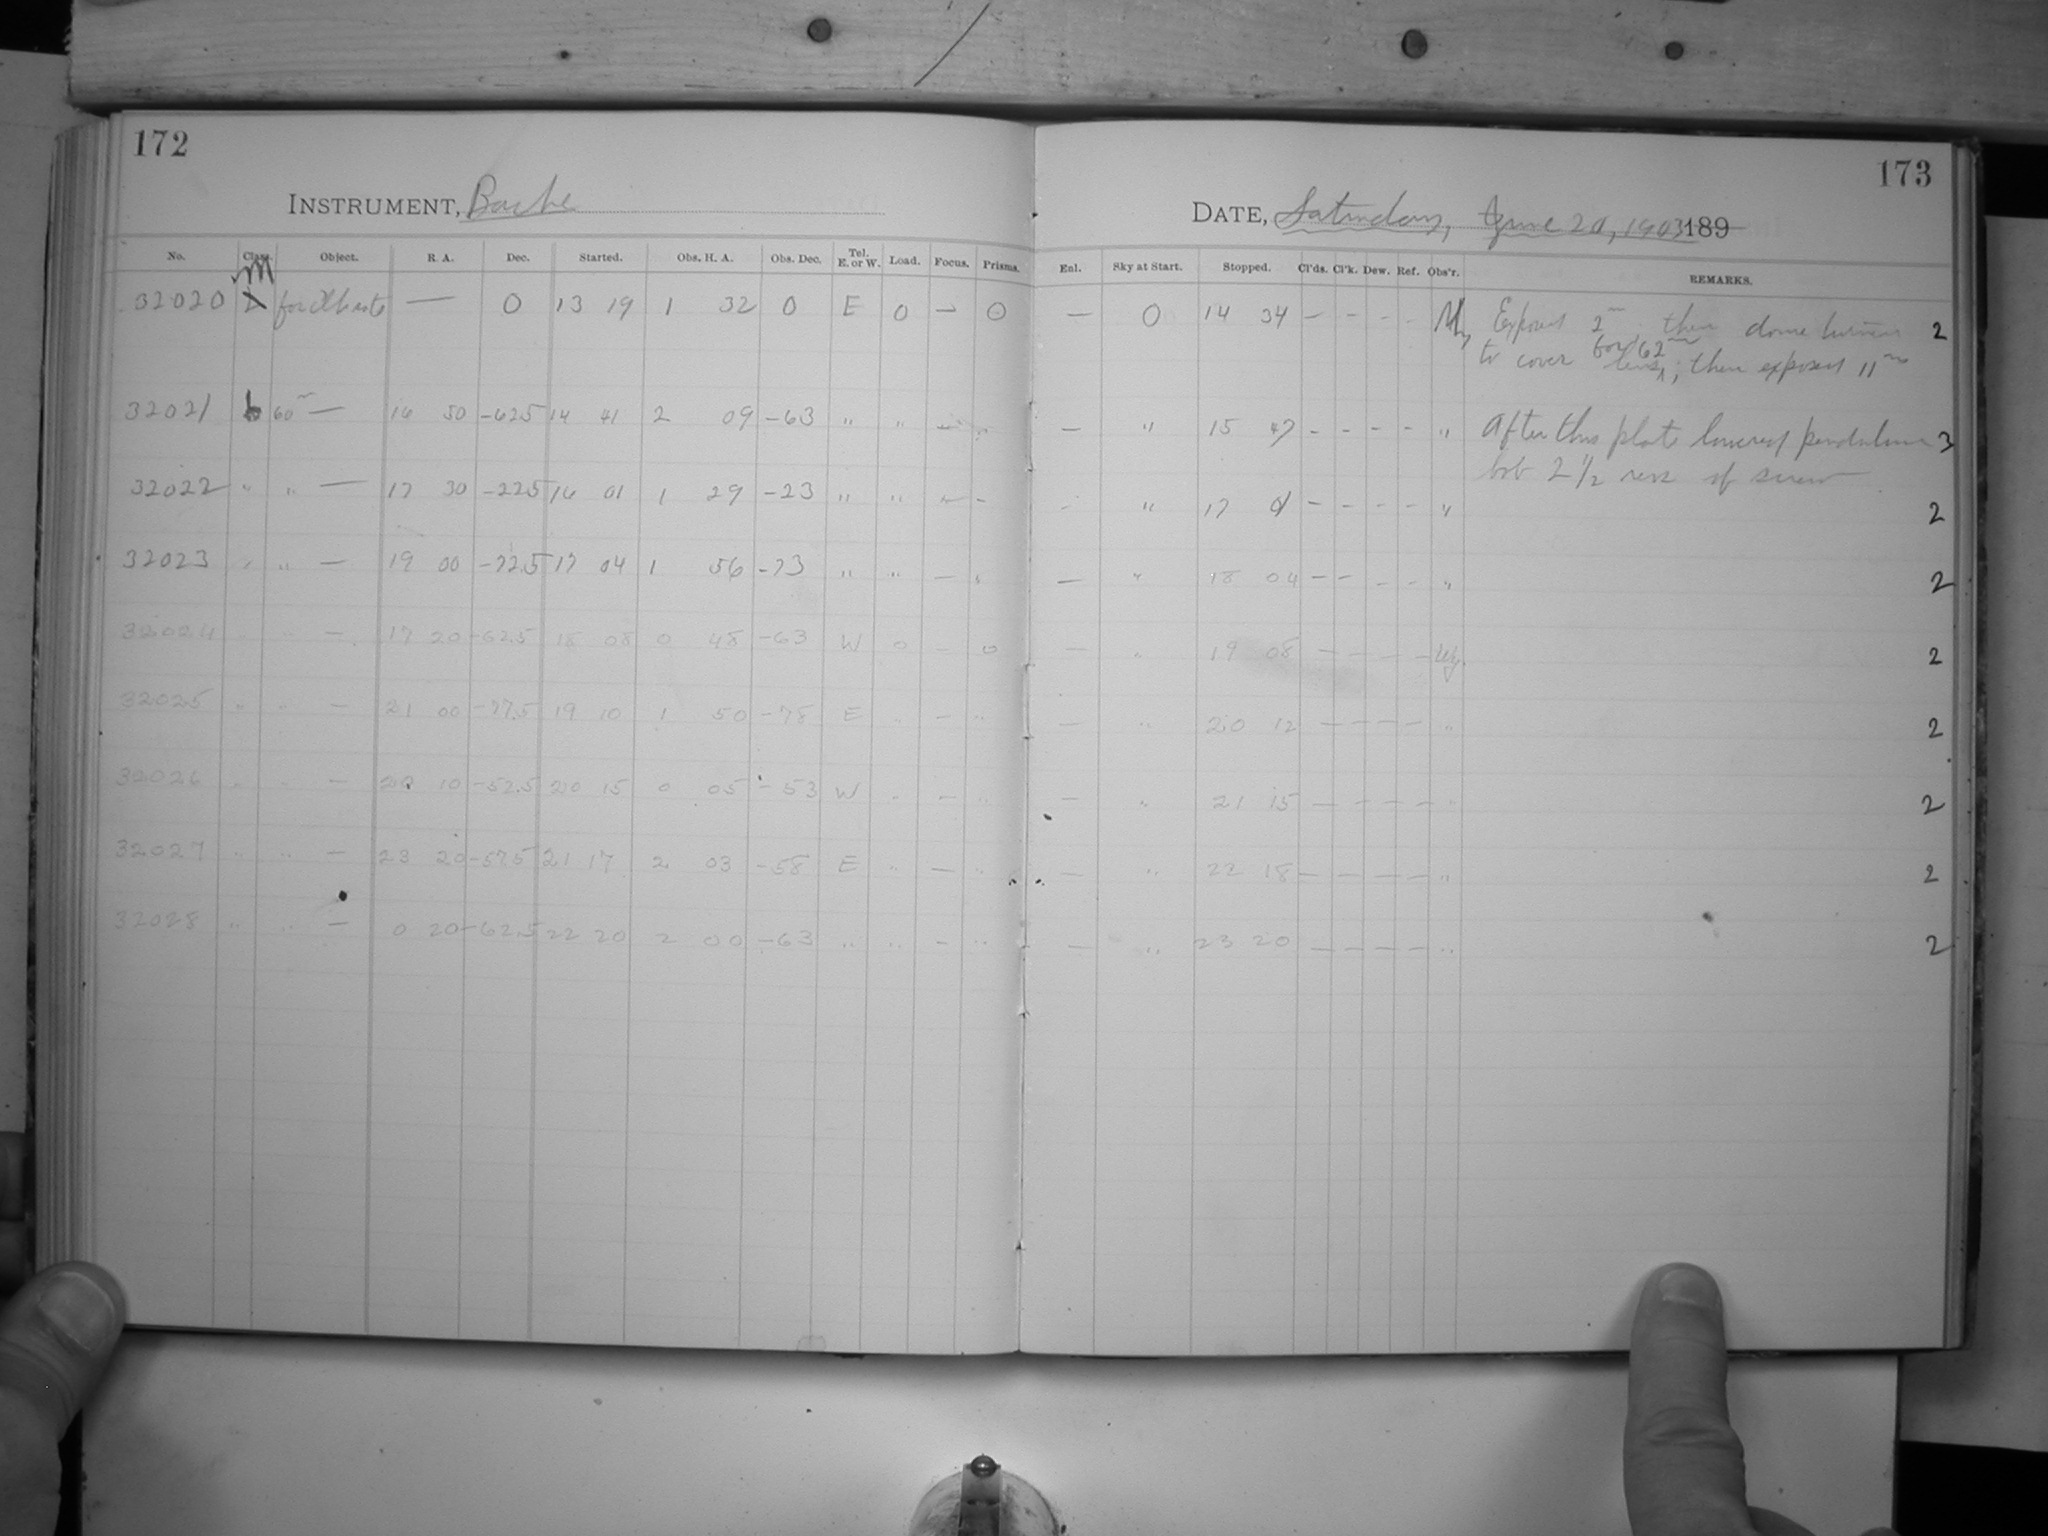 172
173
INSTRUMENT, Bache
DATE, Saturday, June 20, 1903 189
No. Class. Object. R. A. Dec. Started. Obs. H. A. Obs. Dec. Tel. E. or W. Load. Focus. Prisms. Enl. Sky at Start. Stopped. Cl'ds. Cl'k. Dew. Ref. Obs'r. REMARKS.
M
32020 — 0 13 19 1 32 0 E 0 — 0 — 0 14 34 - - - - Exposed 2m, then dome turned 2
to cover lens for 62m; then exposed 11m
32021 b 60m — 16 50 -62.5 14 41 2 09 -63 " " — " — " 15 47 - - - - " After this plate lowered pendulum 3
bob 2 1/2 revs of screw
32022 " " — 17 30 -22.5 16 01 1 29 -23 " " — - - " 17 01 - - - - " 2
32023 " " — 19 00 -72.5 17 04 1 56 -73 " " — " — " 18 04 - - - - " 2
32024 " " — 17 20 -62.5 18 08 0 48 -63 W 0 - 0 — " 19 08 - - - - 2
32025 " " — 21 00 -77.5 19 10 1 50 -78 E " - " — " 20 12 - - - - " 2
32026 " " — 20 10 -52.5 20 15 0 05 -53 W " - " — " 21 15 - - - - " 2
32027 " " — 23 20 -57.5 21 17 2 03 -58 E " - " — " 22 18 - - - - " 2
32028 " " — 0 20 -62.5 22 20 2 00 -63 " " - " — " 23 20 - - - - " 2